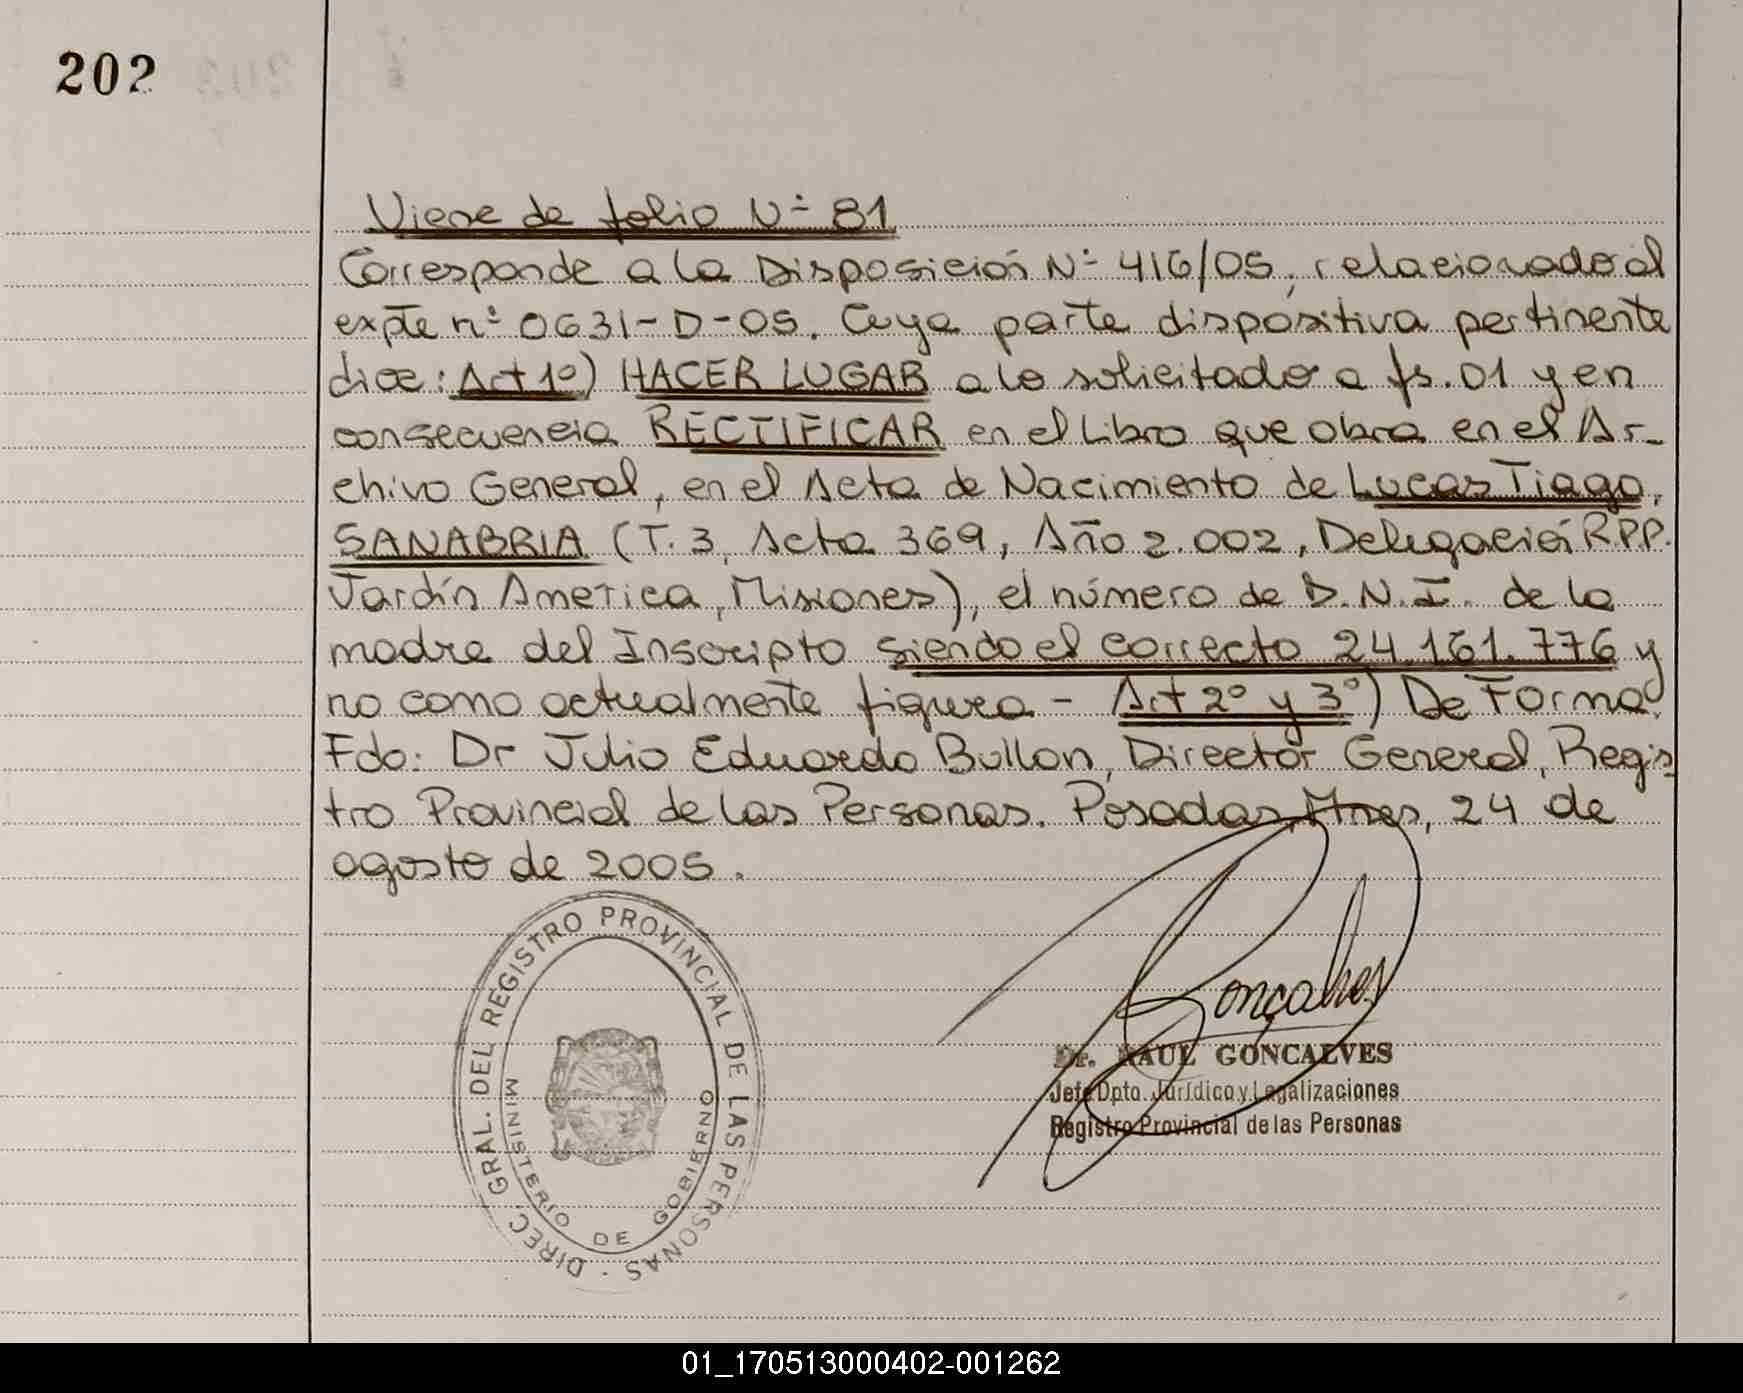 202
Viene de folio Nº 81
Corresponde a la Disposición Nº 416/05, relacionado al
expte nº 0631-D-05. Cuya parte dispositiva pertinente
dice: Art 1º) HACER LUGAR a lo solicitado a fs. 01 y en
consecuencia RECTIFICAR en el Libro que obra en el Ar-
chivo General, en el Acta de Nacimiento de Lucas Tiago,
SANABRIA (T. 3, Acta 369, Año 2.002, Delegación R.P.P.
Jardín America, Misiones), el número de D.N.I. de la
madre del Inscripto siendo el correcto 24.161.776 y
no como actualmente figura - Art 2º y 3º) De Forma.
Fdo: Dr Julio Eduardo Bullon, Director General, Regis
tro Provincial de las Personas. Posadas, Mnes, 24 de
agosto de 2005.
DIREC. GRAL. DEL REGISTRO PROVINCIAL DE LAS PERSONAS -
MINISTERIO DE GOBIERNO
Gonçalves
Dr. RAUL GONCALVES
Jefe Dpto. Jurídico y Legalizaciones
Registro Provincial de las Personas
01_170513000402-001262